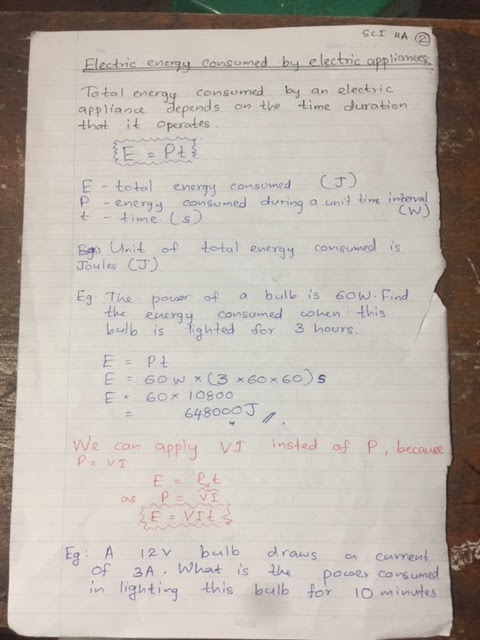 SCI 11A 2
Electric energy consumed by electric appliances.
Total energy consumed by an electric
appliance depends on the time duration
that it operates.
E = Pt
E - total energy consumed (J)
P - energy consumed during a unit time interval (W)
t - time (s)
Unit of total energy consumed is
Joules (J).
Eg: The power of a bulb is 60W. Find
the energy consumed when this
bulb is lighted for 3 hours.
E = Pt
E = 60W × (3 × 60 × 60) s
E = 60 × 10800
= 648000 J
We can apply VI insted of P, because
P = VI
E = Pt
as P = VI
E = VIt
Eg: A 12V bulb draws a current
of 3A. What is the power consumed
in lighting this bulb for 10 minutes